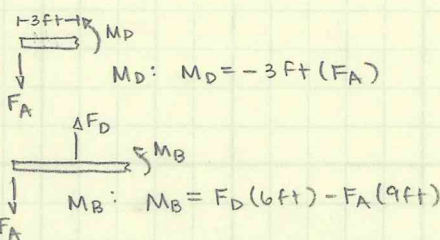 3ft
M_D
M_D: M_D = -3 ft (F_A)
F_A
F_D
M_B
M_B: M_B = F_D (6ft) - F_A (9ft)
F_A